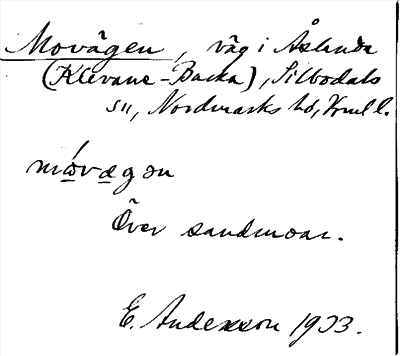 Movägen, väg i Åslunda
(Klevane-Backa), Silbodals
sn, Nordmarks hd, Vrml l.
mωvægən
Över sandmoar.
E. Andersson 1933.